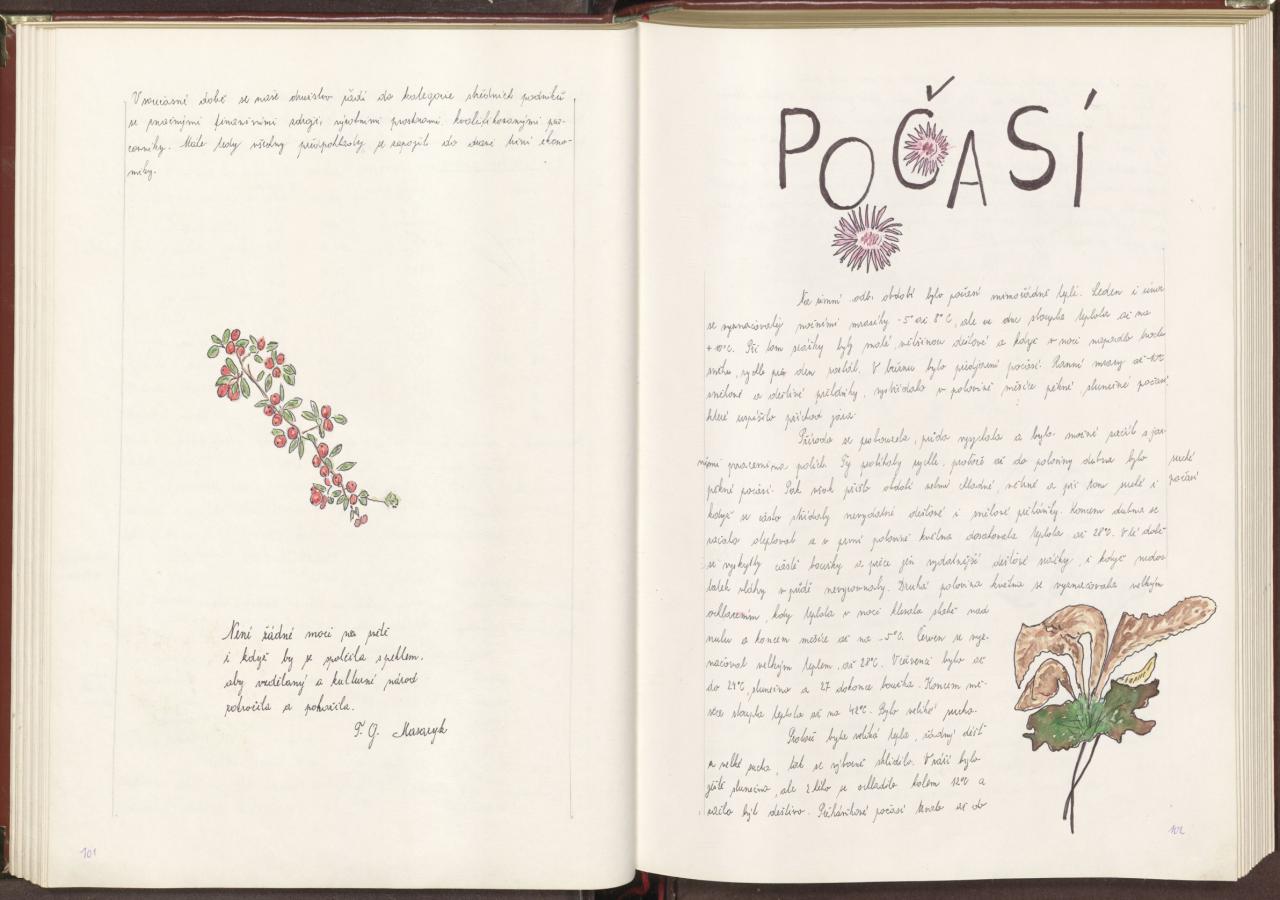 V současné době se naše družstvo řadí do kategorie středních podniků
se značnými finančními zdroji, výrobními prostorami, kvalifikovanými pra-
covníky. Máte tedy všechny předpoklady se zapojit do tržní ekono-
miky.
Není žádné moci na světě
i kdyby se spolčila s peklem,
aby vzdělaný a kulturní národ
pokročila a pokořila.
T. G. Masaryk
101
POČASÍ
Na zimní odb. období bylo počasí mimořádně teplé. Leden i únor
se vyznačovaly nočními mrazíky -5° až 8°C, ale ve dne stoupla teplota až na
+10°C. Při tom srážky byly malé většinou dešťové a když v noci napadlo trochu
sněhu, rychle přes den roztál. V březnu bylo předjarní počasí. Ranní mrazy až -10°C
sněhové a dešťové přeháňky, vystřídalo v polovině měsíce pěkné, slunečné počasí
které uspíšilo příchod jara.
Příroda se probouzela, půda vysychala a bylo možné začít s jar-
ními pracemi na polích. Ty probíhaly rychle, protože až do poloviny dubna bylo suché
pěkné počasí. Pak však přišlo období velmi chladné, větrné a při tom suché i počasí
když se často střídaly nevydatné dešťové i sněhové přeháňky. Koncem dubna se
začalo oteplovat a v první polovině května dosahovala teplota až 28°C. V té době
se vyskytly časté bouřky a přece jen vydatnější dešťové srážky, i když nedos-
tatek vláhy v půdě nevyrovnaly. Druhá polovina května se vyznačovala velkým
ochlazením, kdy teplota v noci klesala slabě nad
nulu a koncem měsíce až na -5°C. Červen se vyz-
načoval velkým teplem, až 28°C. V červenci bylo až
do 24°C, slunečno a 27 dokonce bouřka. Koncem mě-
síce stoupla teplota až na 42°C. Bylo veliké sucho.
Protože byla veliká tepla, žádný déšť
a velké sucha, tak se výborně sklidilo. V září bylo
ještě slunečno, ale se ochladilo kolem 12°C a
začlo být deštivo. Přeháňkové počasí trvalo až do
102